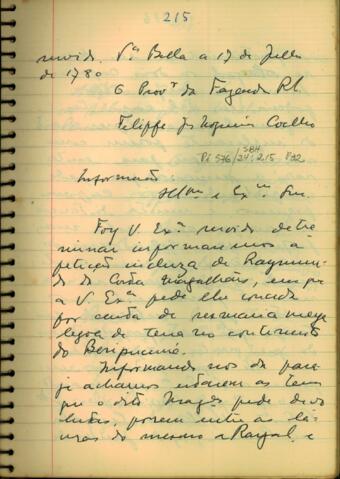 215
servido. Vª Bella a 17 de Julho
de 1780
O Provºr da Fazenda Rl.
Felippe Je Nogueira Coelho
SBH
Pi 576/24: 215 P22
Informação:
Illmº e Exmº Snr.
Foy V. Exª servido deter
minar informaremos à
petição incluza de Raymun
do da Costa Magalhães, em que
a V Exª pede lhe conceda
por carta de sesmaria meya
legoa de terra no continente
do
Informando nos da parage
achamos estarem as terras
que o dito Magªs pede devo
lutas, porem entre as la
vras do mesmo e Rayal. e